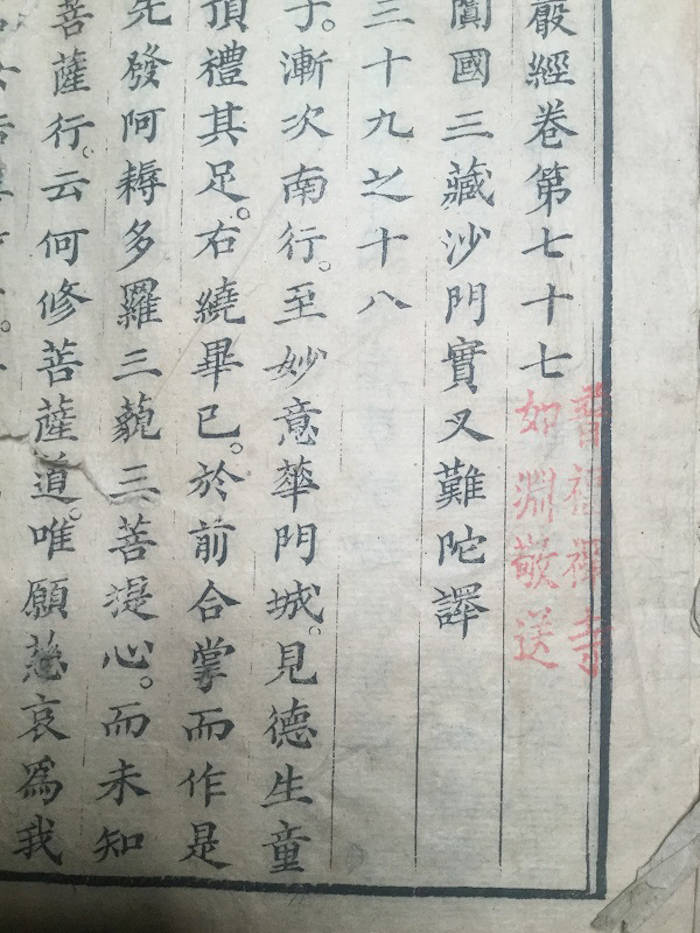 嚴經卷第七十七
禪寺
如淵敬送
闐國三藏沙門實叉難陀譯
三十九之十八
子。漸次南行。至妙意華門城。見德生童
頂禮其足。右繞畢已。於前合掌而作是
先發阿耨多羅三藐三菩提心。而未知
菩薩行。云何修菩薩道。唯願慈哀爲我